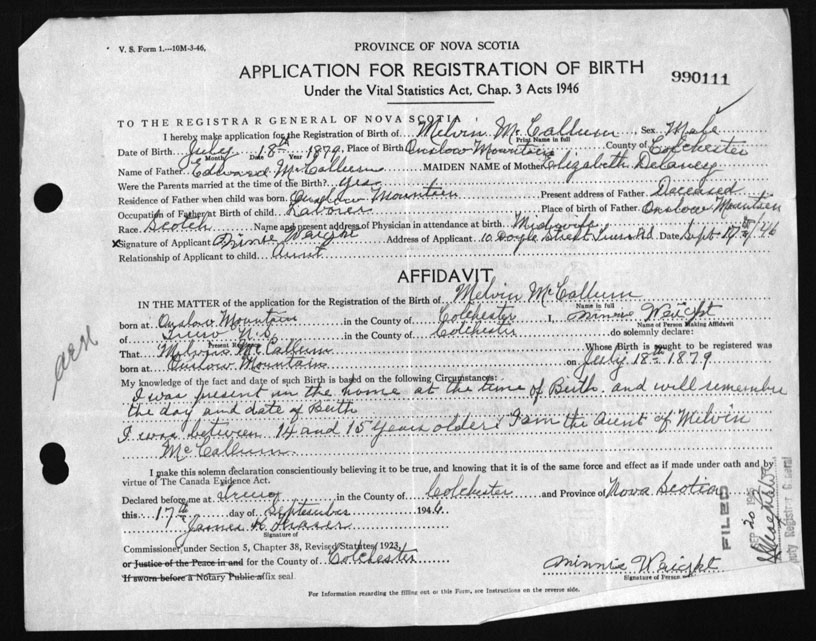 V. S. Form 1.—10M-3-46.
PROVINCE OF NOVA SCOTIA
APPLICATION FOR REGISTRATION OF BIRTH
990111
Under the Vital Statistics Act, Chap. 3 Acts 1946
TO THE REGISTRAR GENERAL OF NOVA SCOTIA
I hereby make application for the Registration of Birth of Melvin McCallum Sex Male
Print Name in full
Date of Birth July 18th 1879 Place of Birth Onslow Mountain County of Colchester
Month Date Year
Name of Father Edward McCallum MAIDEN NAME of Mother Elizabeth Delaney
Were the Parents married at the time of the Birth? Yes
Residence of Father when child was born Onslow Mountain Present address of Father Deceased
Occupation of Father at Birth of child Laborer Place of birth of Father Onslow Mountain
Race Scotch Name and present address of Physician in attendance at birth Midwife
x Signature of Applicant Waight Address of Applicant 10 Doyle Street Truro Date Sept 17th/46
Relationship of Applicant to child aunt
AFFIDAVIT
IN THE MATTER of the application for the Registration of the Birth of Melvin McCallum
Name in full
born at Onslow Mountain in the County of Colchester I, Minnie Waight
Name of Person Making Affidavit
of Truro N.S. in the County of Colchester do solemnly declare:
Present Residence
That Melvin McCallum Whose Birth is sought to be registered was
born at Onslow Mountain on July 18th 1879
My knowledge of the fact and date of such Birth is based on the following Circumstances:
I was present in the home at the time of Birth and will remember
the day and date of Birth
I was between 14 and 15 years older I am the aunt of Melvin
McCallum
I make this solemn declaration conscientiously believing it to be true, and knowing that it is of the same force and effect as if made under oath and by
virtue of The Canada Evidence Act.
Declared before me at Truro in the County of Colchester and Province of Nova Scotia
this 17th day of September 1946
James Fraser
Signature of
Commissioner under Section 5, Chapter 38, Revised Statutes 1923,
or Justice of the Peace in and for the County of Colchester
If sworn before a Notary Public affix seal
Minnie Waight
Signature of Person
FILED
SEP 20
For Information regarding the filling out of this Form, see Instructions on the reverse side.